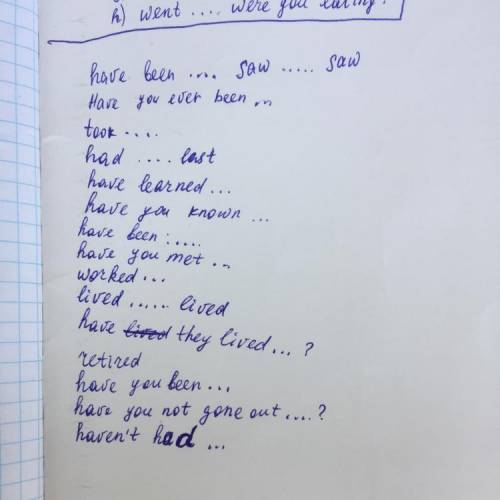 h) went .... were you eating?
have been .... saw ..... saw
Have you ever been ...
took ....
had .... lost
have learned ...
have you known ...
have been : ....
have you met ...
worked ...
lived ..... lived
have lived they lived ... ?
retired
have you been ...
have you not gone out .... ?
haven't had ...